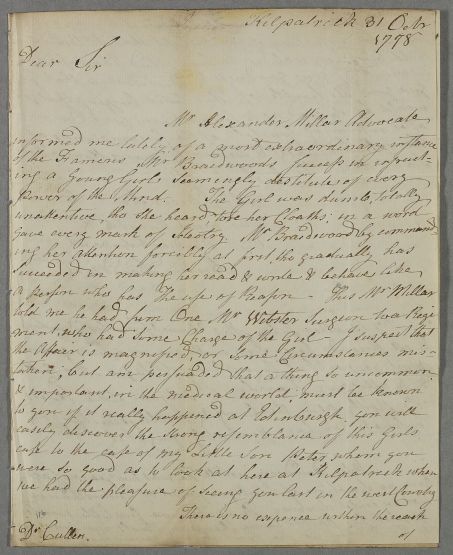 Kilpatrick 31 Octr
1778
Dear Sir
Mr Alexander Millar Advocate
informed me lately of a most extraordinary instance
of the Famous Mr Braidwoods success in instruct-
ing a Young Girl seemingly destitute of every
Power of the Mind. The Girl was dumb, totally
unattentive, tho she heard, tore her Cloaths; in a word
Gave every mark of Ideotry. Mr Braidwood by command-
ing her attention forcibly at first, tho gradually has
succeeded in making her read & write & behave like
a person who has the use of Reason - This Mr Millar
told me he had from One Mr Webster Surgeon to a Regi
ment, who had some Charge of the Girl I suspect that
the Affair is magnified, or some Circumstances mis-
taken; but am persuaded that a thing so uncommon
& important in the medical world, must be known
to you if it really happened at Edinburgh you will
easily discover the strong resemblance of this Girls
case to the case of my Little Son Peter, whom you
were so good as to look at here at Kilpatrick when
we had the pleasure of seeing you last in the west Country
There is no expence within the reach
of
Dr Cullen.